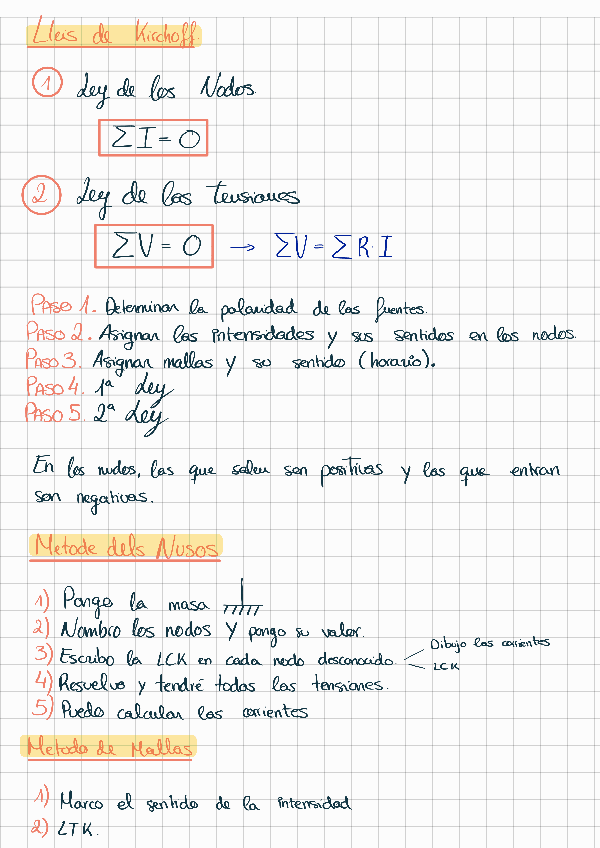 Lleis de Kirchoff.
1 Ley de los Nodos
ΣI = O
2 Ley de las tensiones
ΣV = O → ΣV = ΣR·I
PASO 1. Determinar la polaridad de las fuentes.
PASO 2. Asignar las intensidades y sus sentidos en los nodos.
PASO 3. Asignar mallas y su sentido (horario).
PASO 4. 1ª Ley
PASO 5. 2ª Ley
En los nudos, las que salen son positivas y las que entran
son negativas.
Metode dels Nusos
1) Pongo la masa
2) Nombro los nodos y pongo su valor.
3) Escribo la LCK en cada nodo desconocido. Dibujo las corrientes
LCK
4) Resuelvo y tendré todas las tensiones.
5) Puedo calcular las corrientes
Metodo de Mallas
1) Marco el sentido de la intensidad
2) LTK.